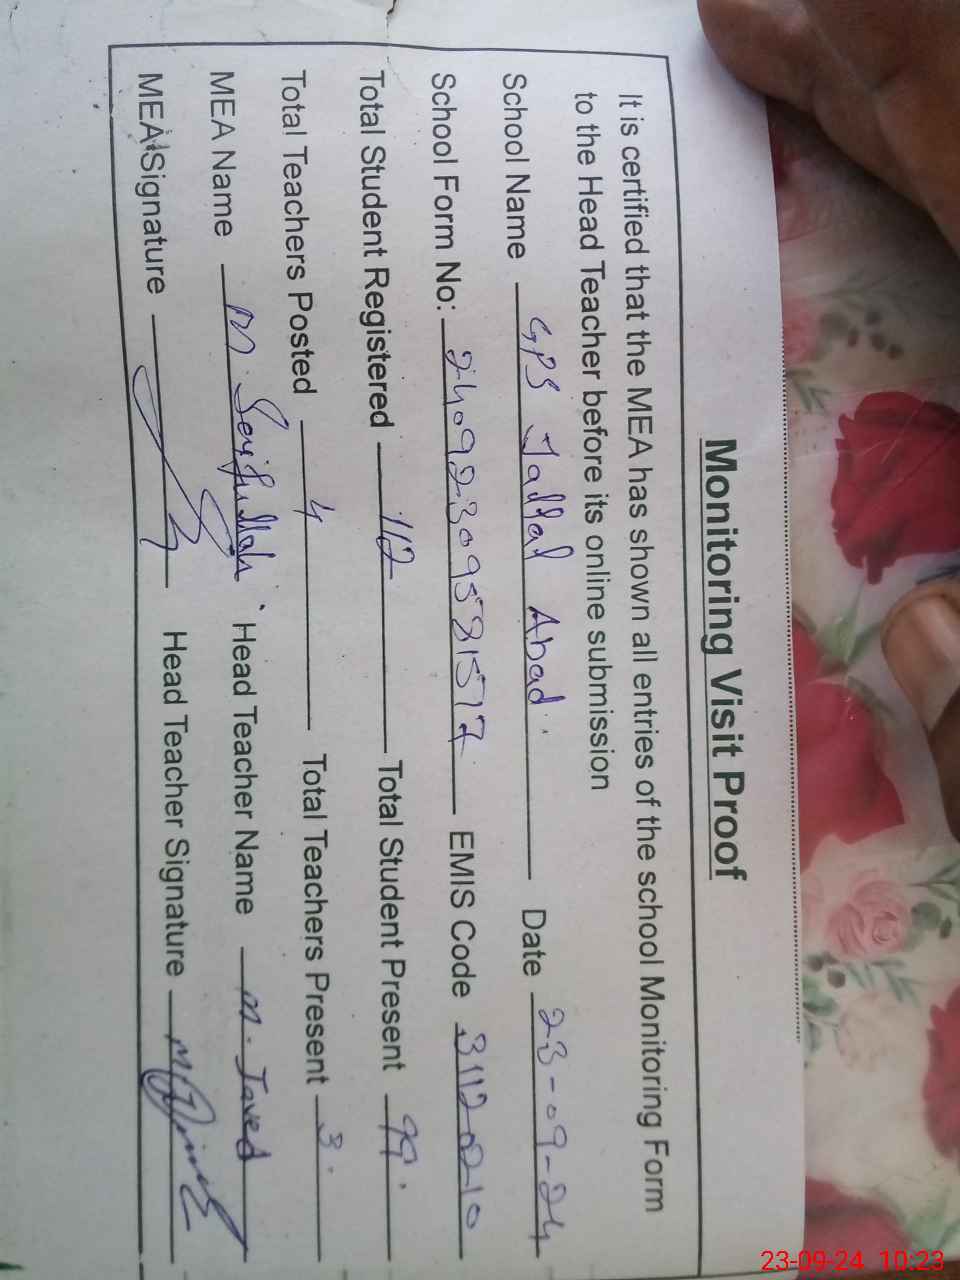 Monitoring Visit Proof
It is certified that the MEA has shown all entries of the school Monitoring Form
to the Head Teacher before its online submission
School Name GPS Jallal Abad Date 23-09-24
School Form No: 24092309581577 EMIS Code 31120210
Total Student Registered 112 Total Student Present 99
Total Teachers Posted 4 Total Teachers Present 3
MEA Name M. Saifullah Head Teacher Name M. Javed
MEA Signature Head Teacher Signature
23-09-24 10:23